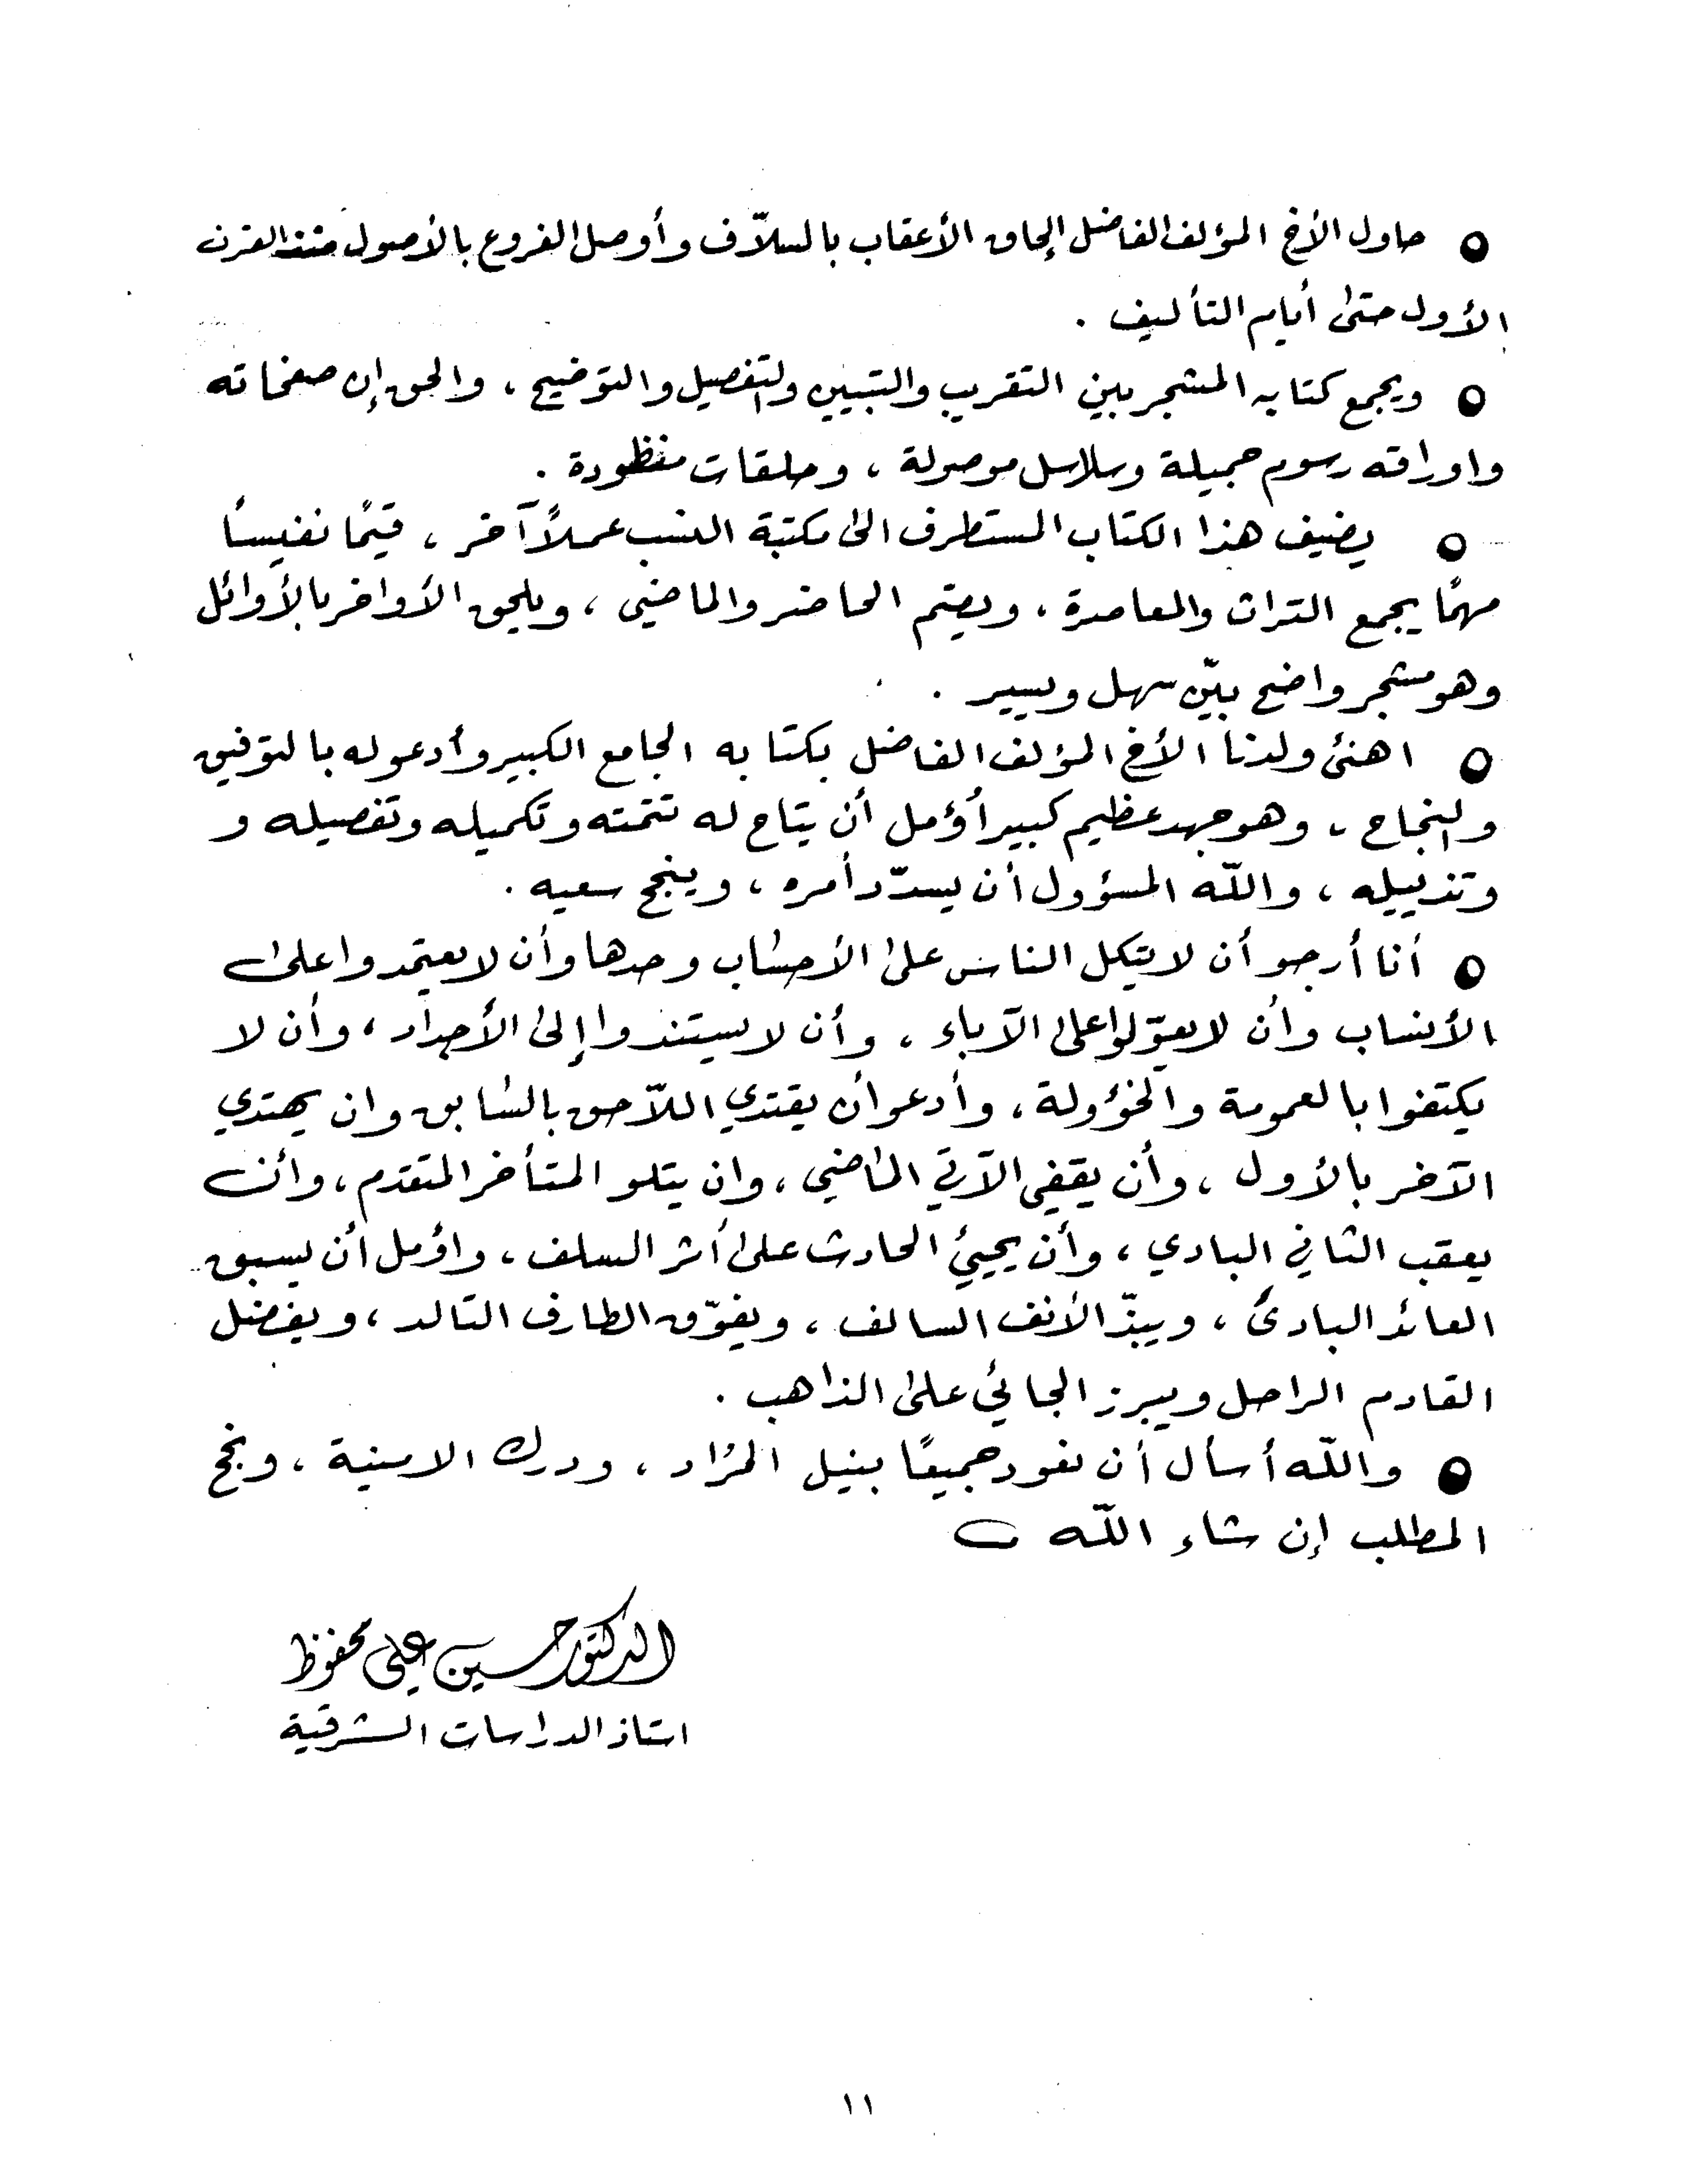 o حاول الأخ المؤلف الفاضل إلحاق الأعقاب بالسلاّف وأوصل الفروع بالأصول منذ القرن
الأول حتى أيام التأليف .
o ويجمع كتابه المشجر بين التقريب والتبيين والتفصيل والتوضيح ، والحق إن صفحاته
واوراقه رسوم جميلة وسلاسل موصولة ، وحلقات منظودة .
o يضيف هذا الكتاب المستطرف الى مكتبة النسب عملاً آخر ، قيمًا نفيسًا
مهمًا يجمع التراث والمعاصرة ، ويضم الحاضر والماضي ، ويلحق الأواخر بالأوائل
وهو مشجر واضح بيّن سهل ويسير .
o اهنئ ولدنا الأخ المؤلف الفاضل بكتابه الجامع الكبير وأدعو له بالتوفيق
والنجاح ، وهو جهد عظيم كبير أؤمل أن يتاح له تتمته وتكميله وتفصيله و
وتذييله ، واللّه المسؤول أن يسدّد أمره ، وينجح سعيه .
o أنا أرجو أن لا يتكل الناس على الأحساب وحدها وأن لا يعتمدوا على
الأنساب وأن لا يعوّلوا على الآباء ، وأن لا يستندوا إلى الأجداد ، وأن لا
يكتفوا بالعمومة والخؤولة ، وأدعو أن يقتدي اللاّحق بالسابق وان يهتدي
الآخر بالأول ، وأن يقفي الآتي الماضي ، وان يتلو المتأخر المتقدم ، وأن
يعقب الثاني البادي ، وأن يجيئ الحادث على أثر السلف ، واؤمل أن يسبق
العائد البادئ ، ويبذّ الأنف السالف ، ويفوّق الطارف التالد ، ويفضل
القادم الراحل ويبرز الجائي على الذاهب .
o واللّه أسأل أن نعود جميعًا بنيل المراد ، ودرك الامنية ، ونجح
المطلب إن شاء اللّه
الدكتور حسين علي محفوظ
استاذ الدراسات الشرقية
١١